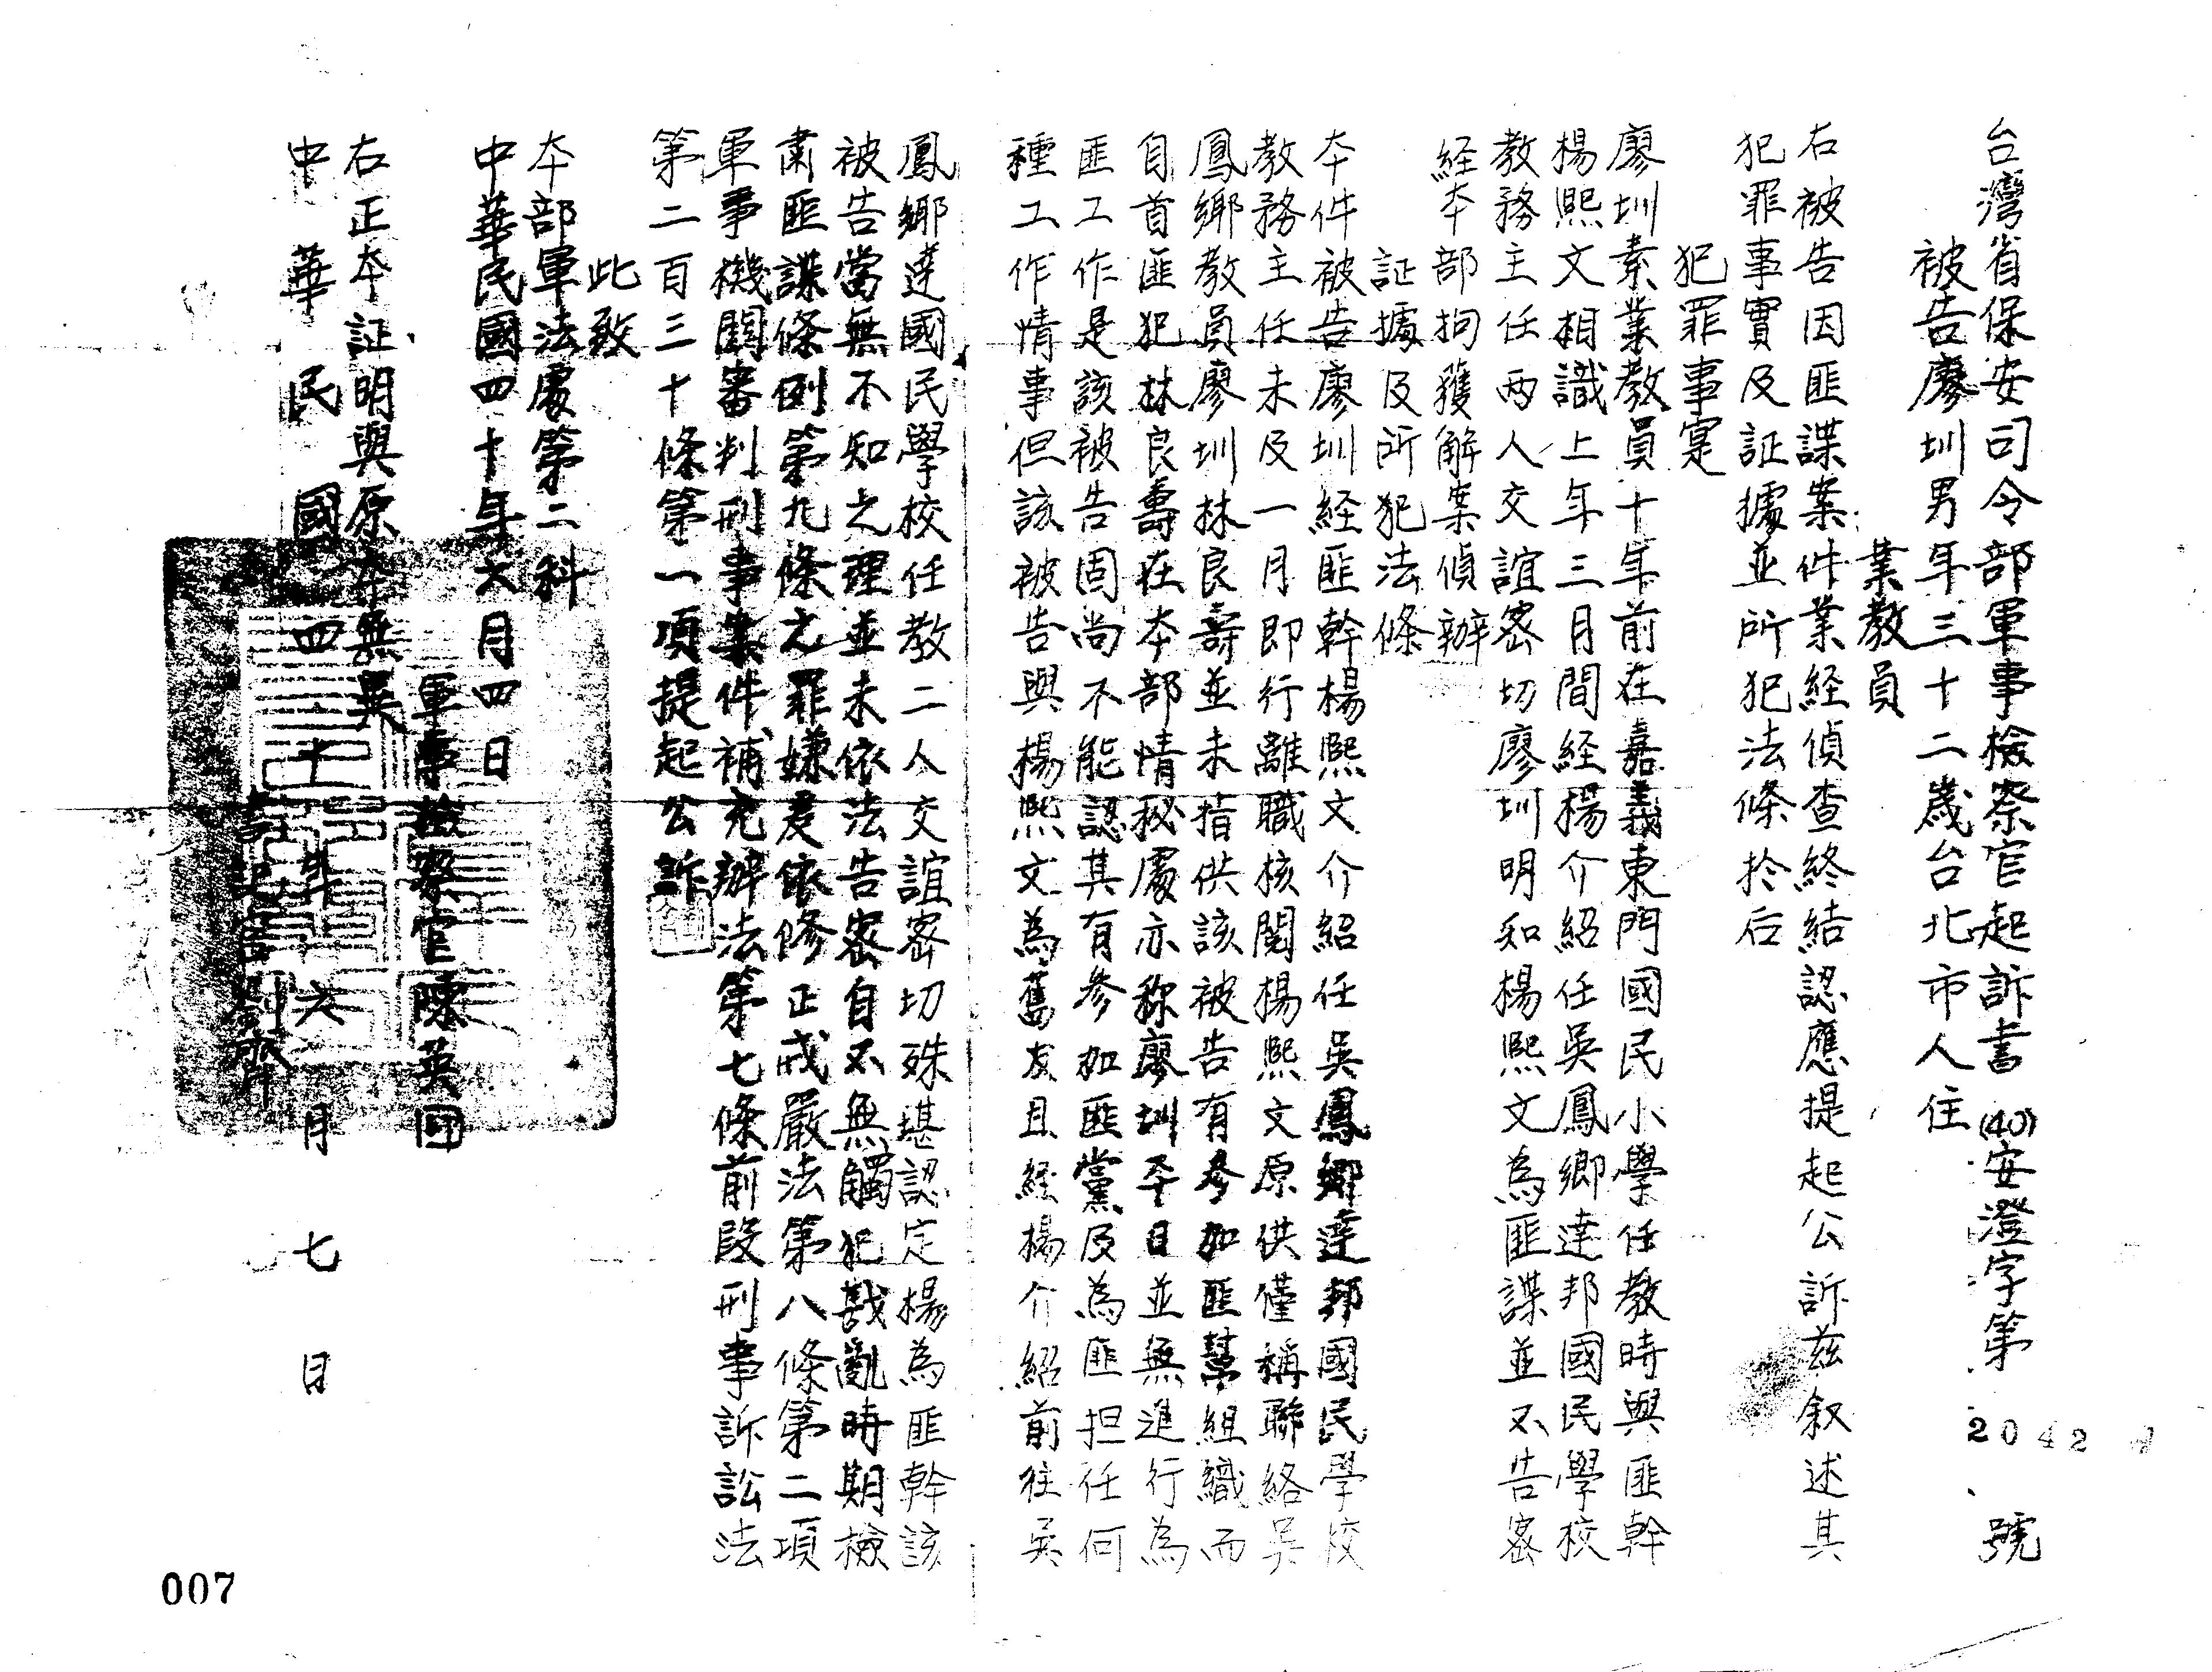 台灣省保安司令部軍事檢察官起訴書 (40)安澄字第2042號
被告廖圳男年三十二歲台北市人住
業教員
右被告因匪諜案件業経偵查終結認應提起公訴茲叙述其
犯罪事實及証據並所犯法條於后
犯罪事寔
廖圳素業教員十年前在嘉義東門國民小學任教時與匪幹
楊熙文相識上年三月間経楊介紹任吳鳳鄉達邦國民學校
教務主任两人交誼密切廖圳明知楊熙文為匪諜並不告密
経本部拘獲解案偵辦
証據及所犯法條
本件被告廖圳経匪幹楊熙文介紹任吳鳳鄉達邦國民學校
教務主任未及一月即行離職核閱楊熙文原供僅稱聯絡吳
鳳鄉教員廖圳林良壽並未指供該被告有參加匪幫組織而
自首匪犯林良壽在本部情秘處亦称廖圳平日並無進行為
匪工作是該被告固尚不能認其有參加匪黨及為匪担任何
種工作情事但該被告與楊熙文為舊友且経楊介紹前往吳
鳳鄉達國民學校任教二人交誼密切殊堪認定楊為匪幹該
被告當無不知之理並未依法告密自不無觸犯戡亂時期檢
肅匪諜條例第九條之罪嫌爰依修正戒嚴法第八條第二項
軍事機関審判刑事案件補充辦法第七條前段刑事訴訟法
第二百三十條第一項提起公訴
此致
本部軍法處第二科
中華民國四十年六月四日
軍事檢察官陳英
右正本証明與原本無異
中華民國四十年六月七日
書記官劉齊
007